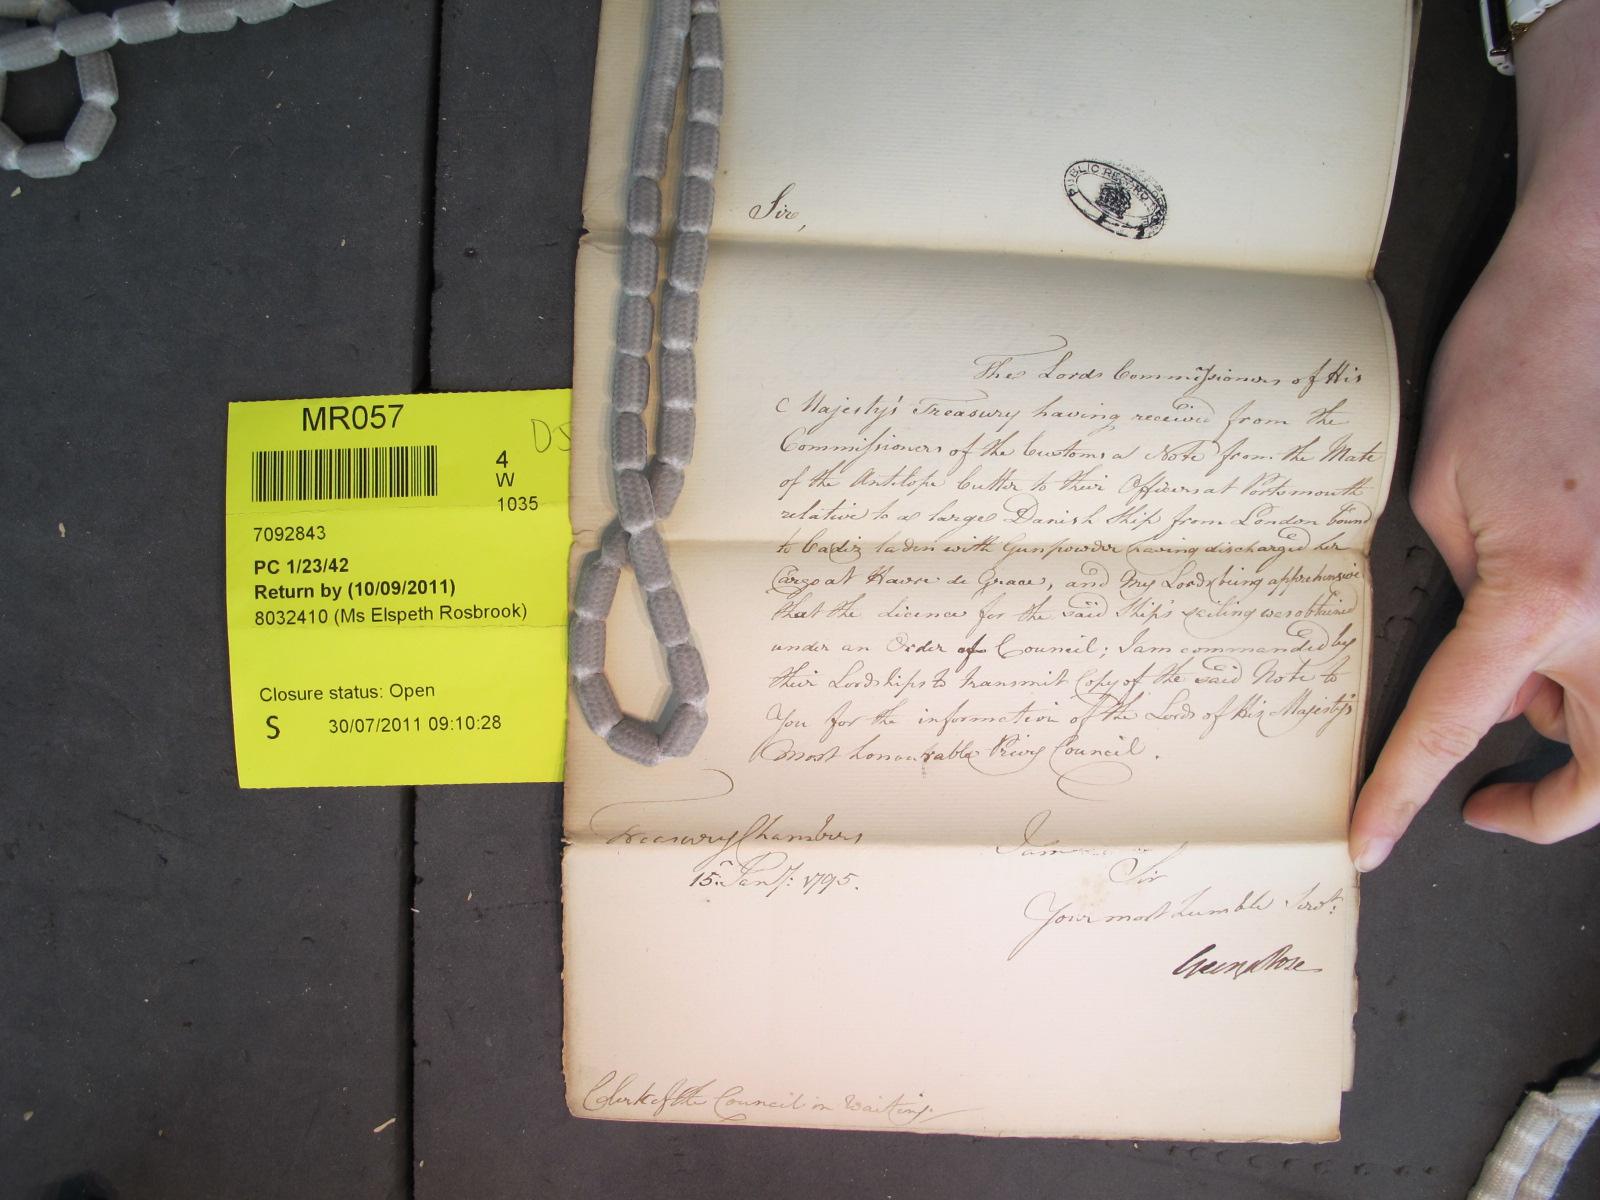 MR057
DJ
4
W
1035
7092843
PC 1/23/42
Return by (10/09/2011)
8032410 (Ms Elspeth Rosbrook)
Closure status: Open
S 30/07/2011 09:10:28
PUBLIC RECORD
Sir,
The Lords Commissioners of His
Majesty's Treasury having received from the
Commissioners of the Customs a Note from the Mate
of the Antilope Cutter to their Officers at Portsmouth
relative to a large Danish Ship from London bound
to Cadiz laden with Gunpowder having discharged her
Cargo at Havre de Grace, and My Lords being apprehensive
that the Licence for the said Ship's sailing was obtained
under an Order of Council; I am commanded by
their Lordships to transmit Copy of the said Note to
You for the information of the Lords of His Majesty's
most honourable Privy Council.
Treasury Chambers
15th Jany: 1795.
I am
Sir
Your most humble Servt:
George Rose
Clerk of the Council in Waiting.